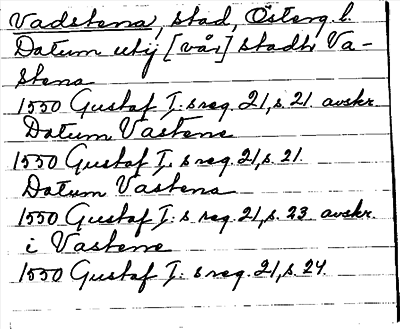 Vadstena, stad, Österg. l.
Datum utij [vår] stadh Va-
stena
1550 Gustaf I:s reg. 21, s. 21. avskr.
Datum Vastene
1550 Gustaf I:s reg. 21, s. 21.
Datum Vastena
1550 Gustaf I:s reg. 21, s. 23 avskr.
i Vastene
1550 Gustaf I:s reg. 21, s. 24.